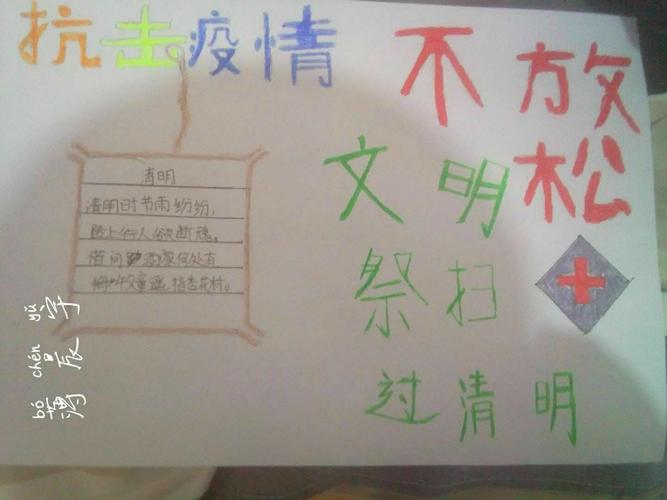 抗击疫情
不放松
文明
祭扫
过清明
清明
清明时节雨纷纷,
路上行人欲断魂。
借问酒家何处有
牧童遥指杏花村。
bó chén yǔ
薄晨宇